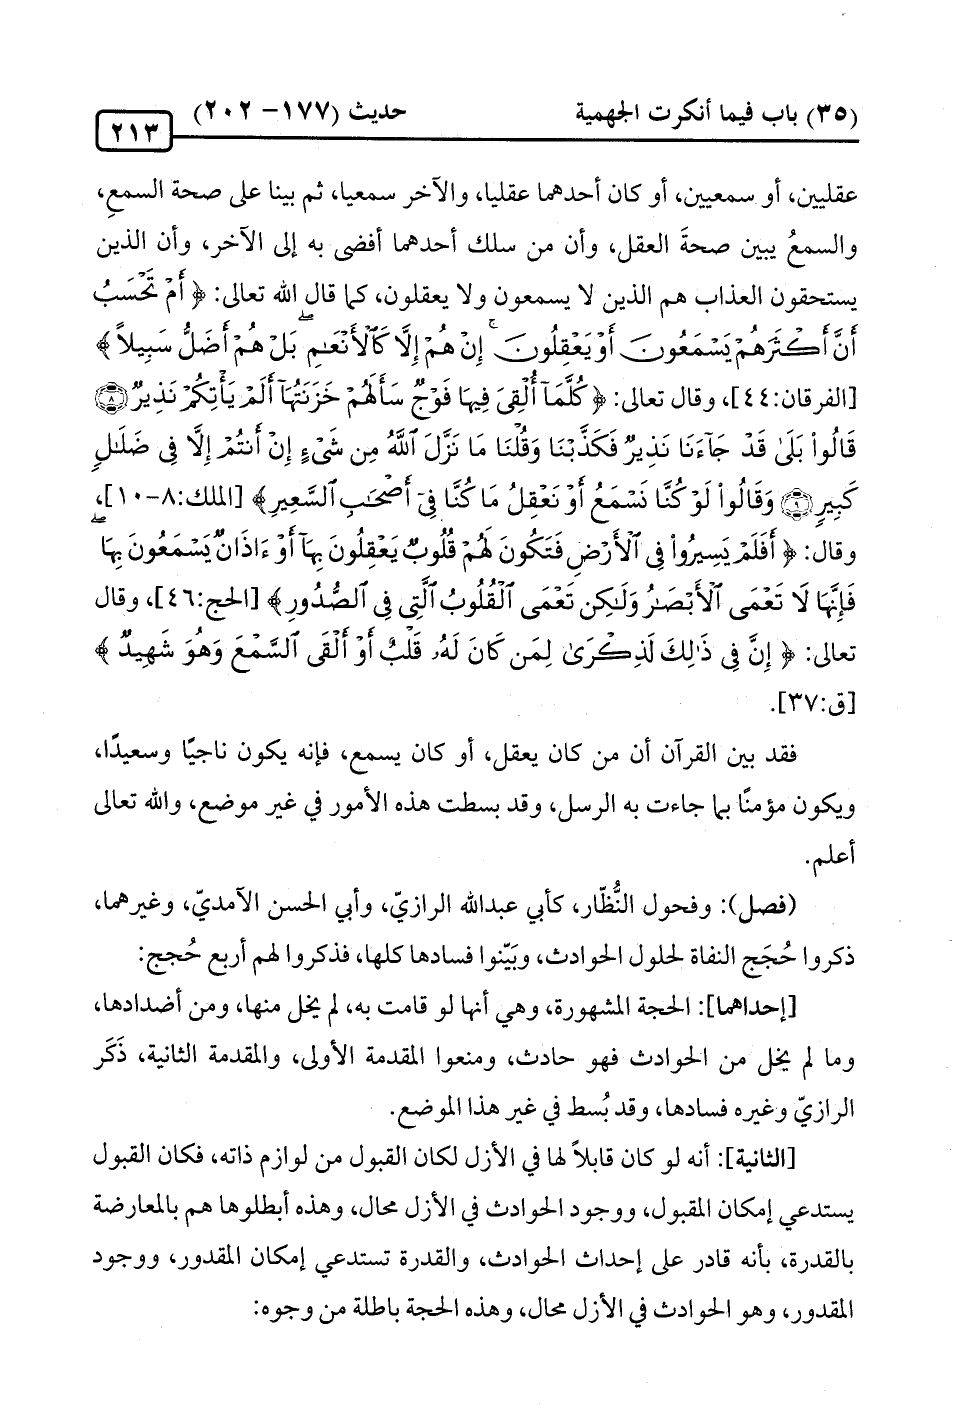 (٣٥) باب فيما أنكرت الجهمية حديث (١٧٧- ٢٠٢)
٢١٣
عقليين، أو سمعيين، أو كان أحدهما عقليا، والآخر سمعيا، ثم بينا على صحة السمعِ،
والسمعُ يبين صحةَ العقل، وأن من سلك أحدهما أفضى به إلى الآخر، وأن الذين
يستحقون العذاب هم الذين لا يسمعون ولا يعقلون، كما قال الله تعالى: ﴿ أَمْ تَحْسَبُ
أَنَّ أَكْثَرَهُمْ يَسْمَعُونَ أَوْ يَعْقِلُونَ ۚ إِنْ هُمْ إِلَّا كَٱلْأَنْعَٰمِ ۖ بَلْ هُمْ أَضَلُّ سَبِيلاً ﴾
[الفرقان:٤٤]، وقال تعالى: ﴿ كُلَّمَآ أُلْقِىَ فِيهَا فَوْجٌ سَأَلَهُمْ خَزَنَتُهَآ أَلَمْ يَأْتِكُمْ نَذِيرٌ ﴿٨﴾
قَالُوا۟ بَلَىٰ قَدْ جَآءَنَا نَذِيرٌ فَكَذَّبْنَا وَقُلْنَا مَا نَزَّلَ ٱللَّهُ مِن شَىْءٍ إِنْ أَنتُمْ إِلَّا فِى ضَلَٰلٍ
كَبِيرٍ ﴿٩﴾ وَقَالُوا۟ لَوْ كُنَّا نَسْمَعُ أَوْ نَعْقِلُ مَا كُنَّا فِىٓ أَصْحَٰبِ ٱلسَّعِيرِ﴾ [الملك:٨-١٠]،
وقال: ﴿ أَفَلَمْ يَسِيرُوا۟ فِى ٱلْأَرْضِ فَتَكُونَ لَهُمْ قُلُوبٌ يَعْقِلُونَ بِهَآ أَوْ ءَاذَانٌ يَسْمَعُونَ بِهَا ۖ
فَإِنَّهَا لَا تَعْمَى ٱلْأَبْصَٰرُ وَلَٰكِن تَعْمَى ٱلْقُلُوبُ ٱلَّتِى فِى ٱلصُّدُورِ﴾ [الحج:٤٦]، وقال
تعالى: ﴿ إِنَّ فِى ذَٰلِكَ لَذِكْرَىٰ لِمَن كَانَ لَهُۥ قَلْبٌ أَوْ أَلْقَى ٱلسَّمْعَ وَهُوَ شَهِيدٌ ﴾
[ق:٣٧].
فقد بين القرآن أن من كان يعقل، أو كان يسمع، فإنه يكون ناجيًا وسعيدًا،
ويكون مؤمنًا بما جاءت به الرسل، وقد بسطت هذه الأمور في غير موضع، والله تعالى
أعلم.
(فصل): وفحول النُّظّار، كأبي عبدالله الرازيّ، وأبي الحسن الآمديّ، وغيرهما،
ذكروا حُجَج النفاة لحلول الحوادث، وبَيّنوا فسادها كلها، فذكروا لهم أربع حُجج:
[إحداهما]: الحجة المشهورة، وهي أنها لو قامت به، لم يخل منها، ومن أضدادها،
وما لم يخل من الحوادث فهو حادث، ومنعوا المقدمة الأولى، والمقدمة الثانية، ذَكَر
الرازيّ وغيره فسادها، وقد بُسط في غير هذا الموضع.
[الثانية]: أنه لو كان قابلاً لها في الأزل لكان القبول من لوازم ذاته، فكان القبول
يستدعي إمكان المقبول، ووجود الحوادث في الأزل محال، وهذه أبطلوها هم بالمعارضة
بالقدرة، بأنه قادر على إحداث الحوادث، والقدرة تستدعي إمكان المقدور، ووجود
المقدور، وهو الحوادث في الأزل محال، وهذه الحجة باطلة من وجوه: